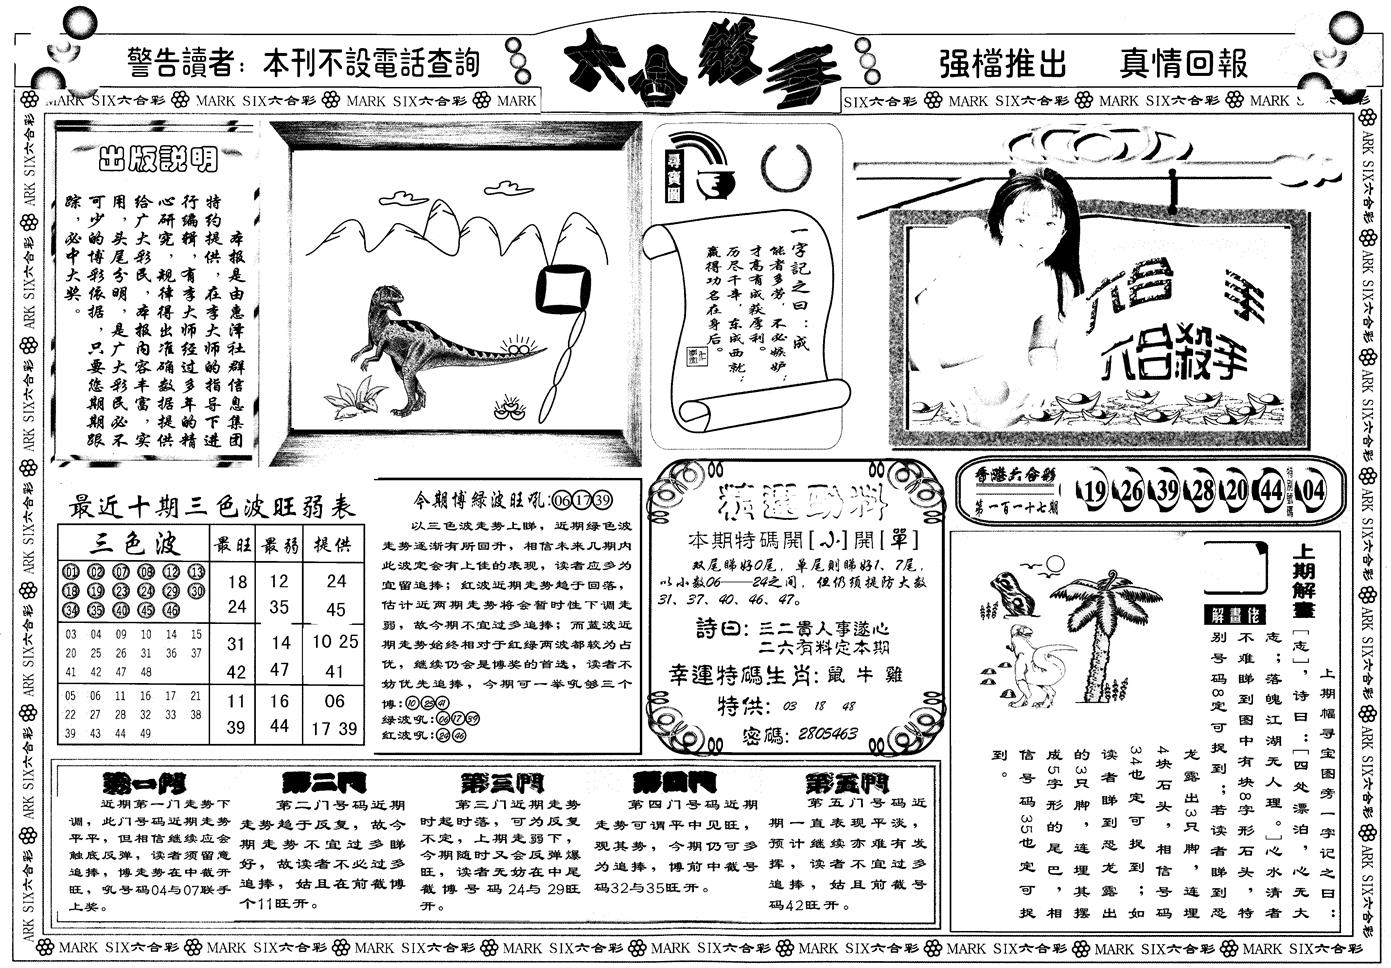 警告讀者：本刊不設電話查詢
六合殺手
强檔推出 真情回報
MARK SIX六合彩 MARK SIX六合彩 MARK SIX六合彩 MARK
SIX六合彩 MARK SIX六合彩 MARK SIX六合彩
出版説明
本报是由惠泽社群信息集团
特约提供，在李大师的指导下进
行编辑，有李大师经过多年的精
心研究，规律得出准确数据提供
给广大彩民，本报内容丰富，实
用，头尾分明，是广大彩民必不
可少的博彩依据，只要您期期跟
踪，必中大奖。
尋寶圖
一字記之曰：成
能者多劳，不必嫉妒；
才高有成获厚利。
历尽千辛，东成西就；
赢得功名在身后。
六合 手
六合殺手
香港六合彩
第一百一十七期
19 26 39 28 20 44 特别號碼 04
最近十期三色波旺弱表
三色波 最旺 最弱 提供
01 02 07 08 12 13
18 19 23 24 29 30
34 35 40 45 46
18 12 24
24 35 45
03 04 09 10 14 15
20 25 26 31 36 37
41 42 47 48
31 14 10 25
42 47 41
05 06 11 16 17 21
22 27 28 32 33 38
39 43 44 49
11 16 06
39 44 17 39
今期博綠波旺吼:06 17 39
以三色波走势上睇，近期绿色波
走势逐渐有所回升，相信未来几期内
此波定会有上佳的表现，读者应多为
宜留追捧；红波近期走势趋于回落，
估计近两期走势将会暂时性下调走
弱，故今期不宜过多追捧；而蓝波近
期走势始终相对于红绿两波都较为占
优，继续仍会是博奖的首选，读者不
妨优先追捧，今期可一举吼够三个
博:10 25 41
绿波吼:06 17 39
红波吼:24 46
精選勁料
本期特碼開[小]開[單]
双尾睇好0尾，单尾则睇好1、7尾，
以小数06——24之间，但仍须提防大数
31、37、40、46、47。
詩曰：三二貴人事遂心
二六有料定本期
幸運特碼生肖: 鼠 牛 雞
特供: 03 18 48
密碼: 2805463
上期解畫
解畫佬
上期幅寻宝图旁一字记之曰：
[志]，诗曰：[四处漂泊，心无大
志；落魄江湖无人理。]心水清者
不难睇到图中有块8字形石头，特
别号码8定可捉到；若读者睇到恐
龙露出3只脚，连埋
4块石头，相信号码
34也定可捉到；如
读者睇到恐龙露出
的3只脚，连埋其摆
成5字形的尾巴，相
信号码35也定可捉
到。
第一門
近期第一门走势下
调，此门号码近期走势
平平，但相信继续应会
触底反弹，读者须留意
追捧，博走势在中截开
旺，吼号码04与07联手
上奖。
第二門
第二门号码近期
走势趋于反复，故今
期走势不宜过多睇
好，故读者不必过多
追捧，姑且在前截博
个11旺开。
第三門
第三门近期走势
时起时落，可为反复
不定，上期走弱下，
今期随时又会反弹爆
旺，读者无妨在中尾
截博号码24与29旺
开。
第四門
第四门号码近期
走势可谓平中见旺，
观其势，今期仍可多
为追捧，博前中截号
码32与35旺开。
第五門
第五门号码近
期一直表现平淡，
预计继续亦难有发
挥，读者不宜过多
追捧，姑且前截号
码42旺开。
MARK SIX六合彩 MARK SIX六合彩 MARK SIX六合彩 MARK SIX六合彩 MARK SIX六合彩 MARK SIX六合彩 MARK SIX六合彩 MARK SIX六合彩 MARK SIX六合彩